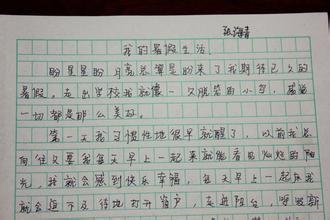 张海青
我的暑假生活
盼星星盼月亮总算是盼来了我期待已久的
暑假。走出学校我就像一只脱笼的小鸟,感觉
一切都是那么美好。
第一天我习惯性地很早就醒了,以前我总
向往夏天每天早上一起来就能看见灿烂的阳
光,我就会感到快乐幸福,每天早上一起床我
就会迫不及待地打开窗户,走进阳台,呼吸新